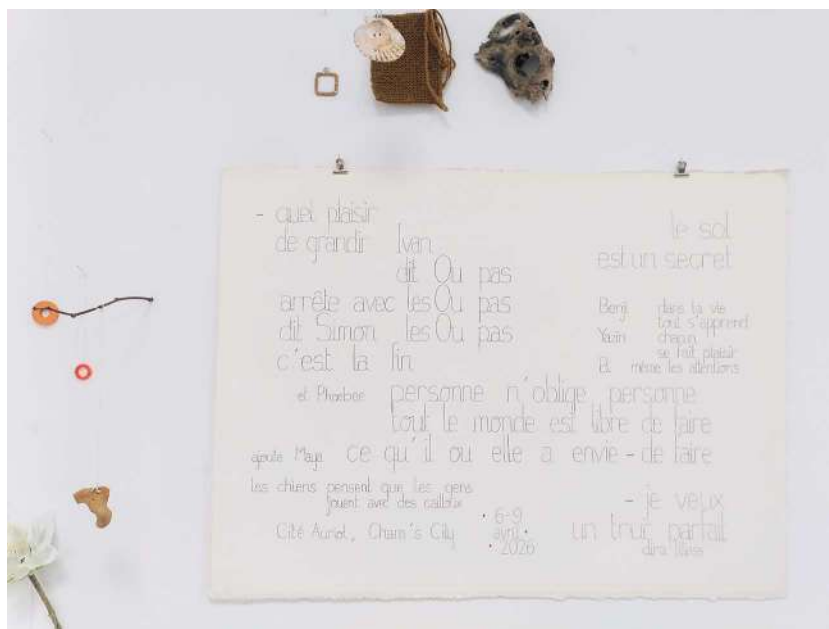 - quel plaisir
de grandir Ivan
dit Ou pas
arrête avec les Ou pas
dit Simon les Ou pas
c'est la fin
le sol
est un secret
Benji dans la vie
tout s'apprend
Yazin chacun
se fait plaisir
Et même les attentions
et Phoebee personne n'oblige personne
tout le monde est libre de faire
ajoute Maya ce qu'il ou elle a envie - de faire
les chiens pensent que les gens
jouent avec des cailloux
Cité Auriol, Cham's City
• 6-9
avril •
• 2026
- je veux
un truc parfait
dira